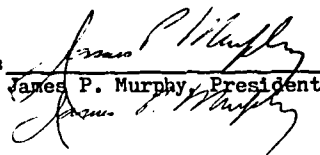 James P. Murphy
James P. Murphy, President
James P. Murphy